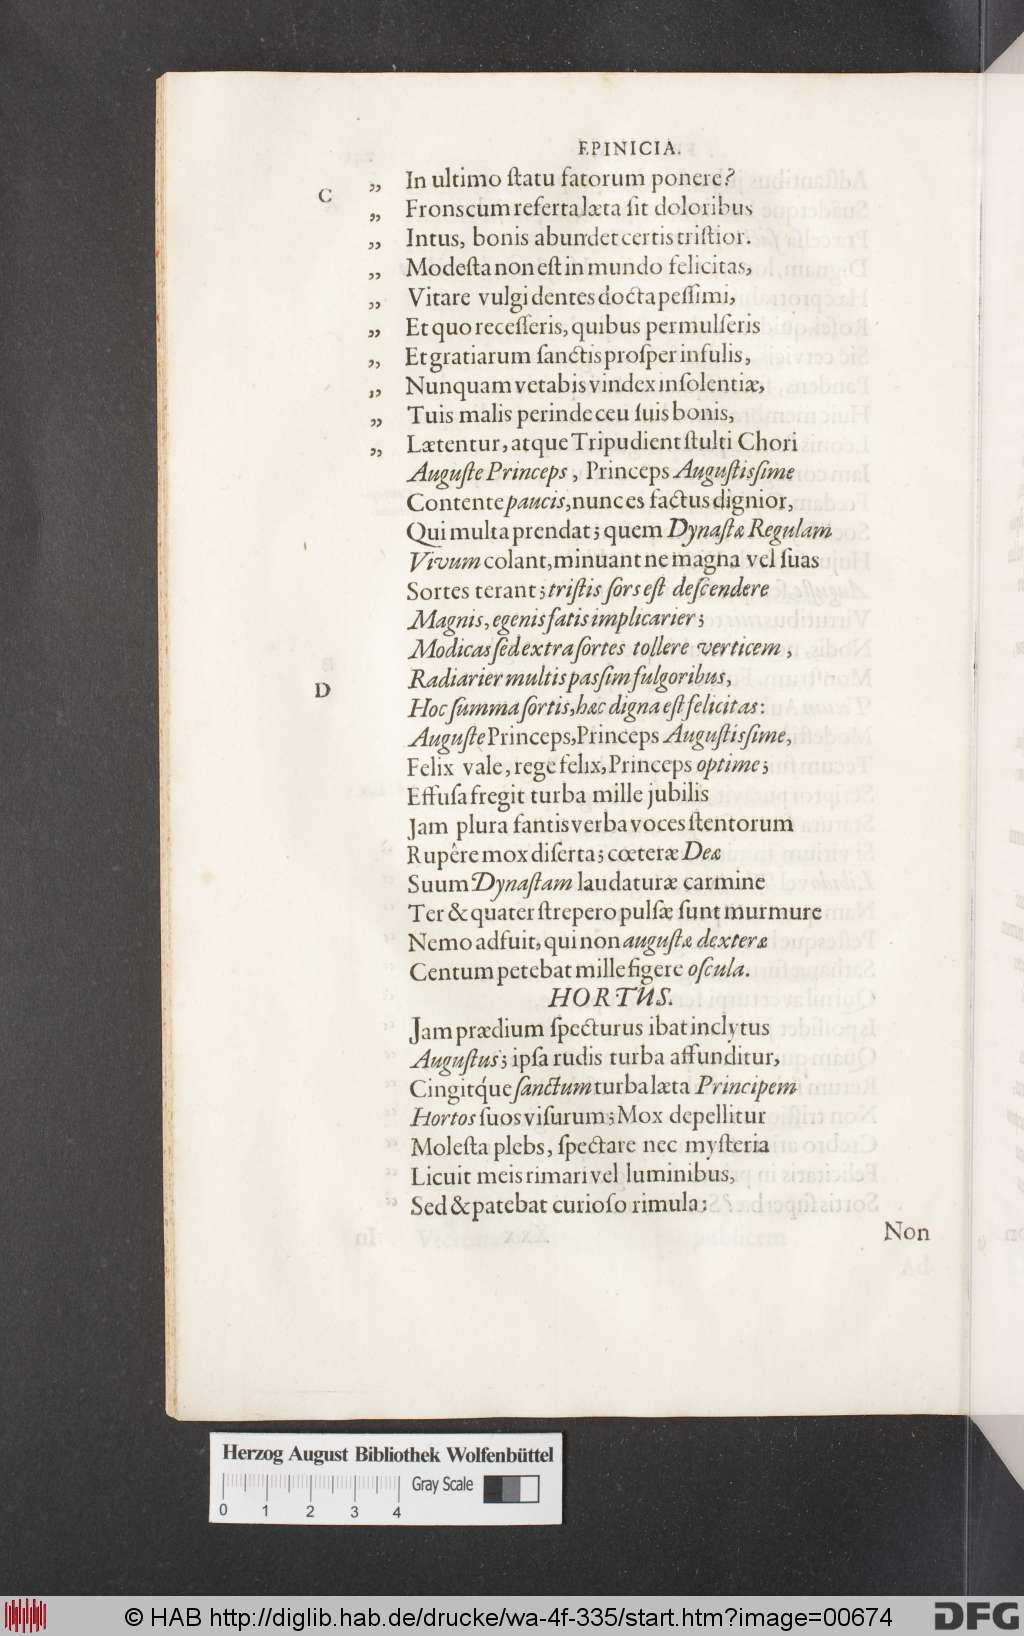 EPINICIA.
C ,, In ultimo ſtatu fatorum ponere?
,, Frons cum referta læta ſit doloribus
,, Intus, bonis abundet certis triſtior.
,, Modeſta non eſt in mundo felicitas,
,, Vitare vulgi dentes docta peſſimi,
,, Et quo receſſeris, quibus permulſeris
,, Et gratiarum ſanctis proſper inſulis,
,, Nunquam vetabis vindex inſolentiæ,
,, Tuis malis perinde ceu ſuis bonis,
,, Lætentur, atque Tripudient ſtulti Chori
Auguſte Princeps, Princeps Auguſtiſsime
Contente paucis, nunc es factus dignior,
Qui multa prendat; quem Dynaſtæ Regulam
Vivum colant, minuant ne magna vel ſuas
Sortes terant; triſtis ſors eſt deſcendere
Magnis, egenis fatis implicarier;
Modicas ſed extra ſortes tollere verticem,
D Radiarier multis paſsim fulgoribus,
Hoc ſumma ſortis, hæc digna eſt felicitas:
Auguſte Princeps, Princeps Auguſtiſsime,
Felix vale, rege felix, Princeps optime;
Effuſa fregit turba mille jubilis
Jam plura fantis verba voces ſtentorum
Rupêre mox diſerta; cœteræ Deæ
Suum Dynaſtam laudaturæ carmine
Ter & quater ſtrepero pulſæ ſunt murmure
Nemo adfuit, qui non auguſtæ dexteræ
Centum petebat mille figere oſcula.
HORTUS.
Jam prædium ſpecturus ibat inclytus
Auguſtus; ipſa rudis turba affunditur,
Cingitq́ue ſanctum turba læta Principem
Hortos ſuos viſurum; Mox depellitur
Moleſta plebs, ſpectare nec myſteria
Licuit meis rimari vel luminibus,
Sed & patebat curioſo rimula:
Non
Herzog August Bibliothek Wolfenbüttel
Gray Scale
0 1 2 3 4
© HAB http://diglib.hab.de/drucke/wa-4f-335/start.htm?image=00674
DFG